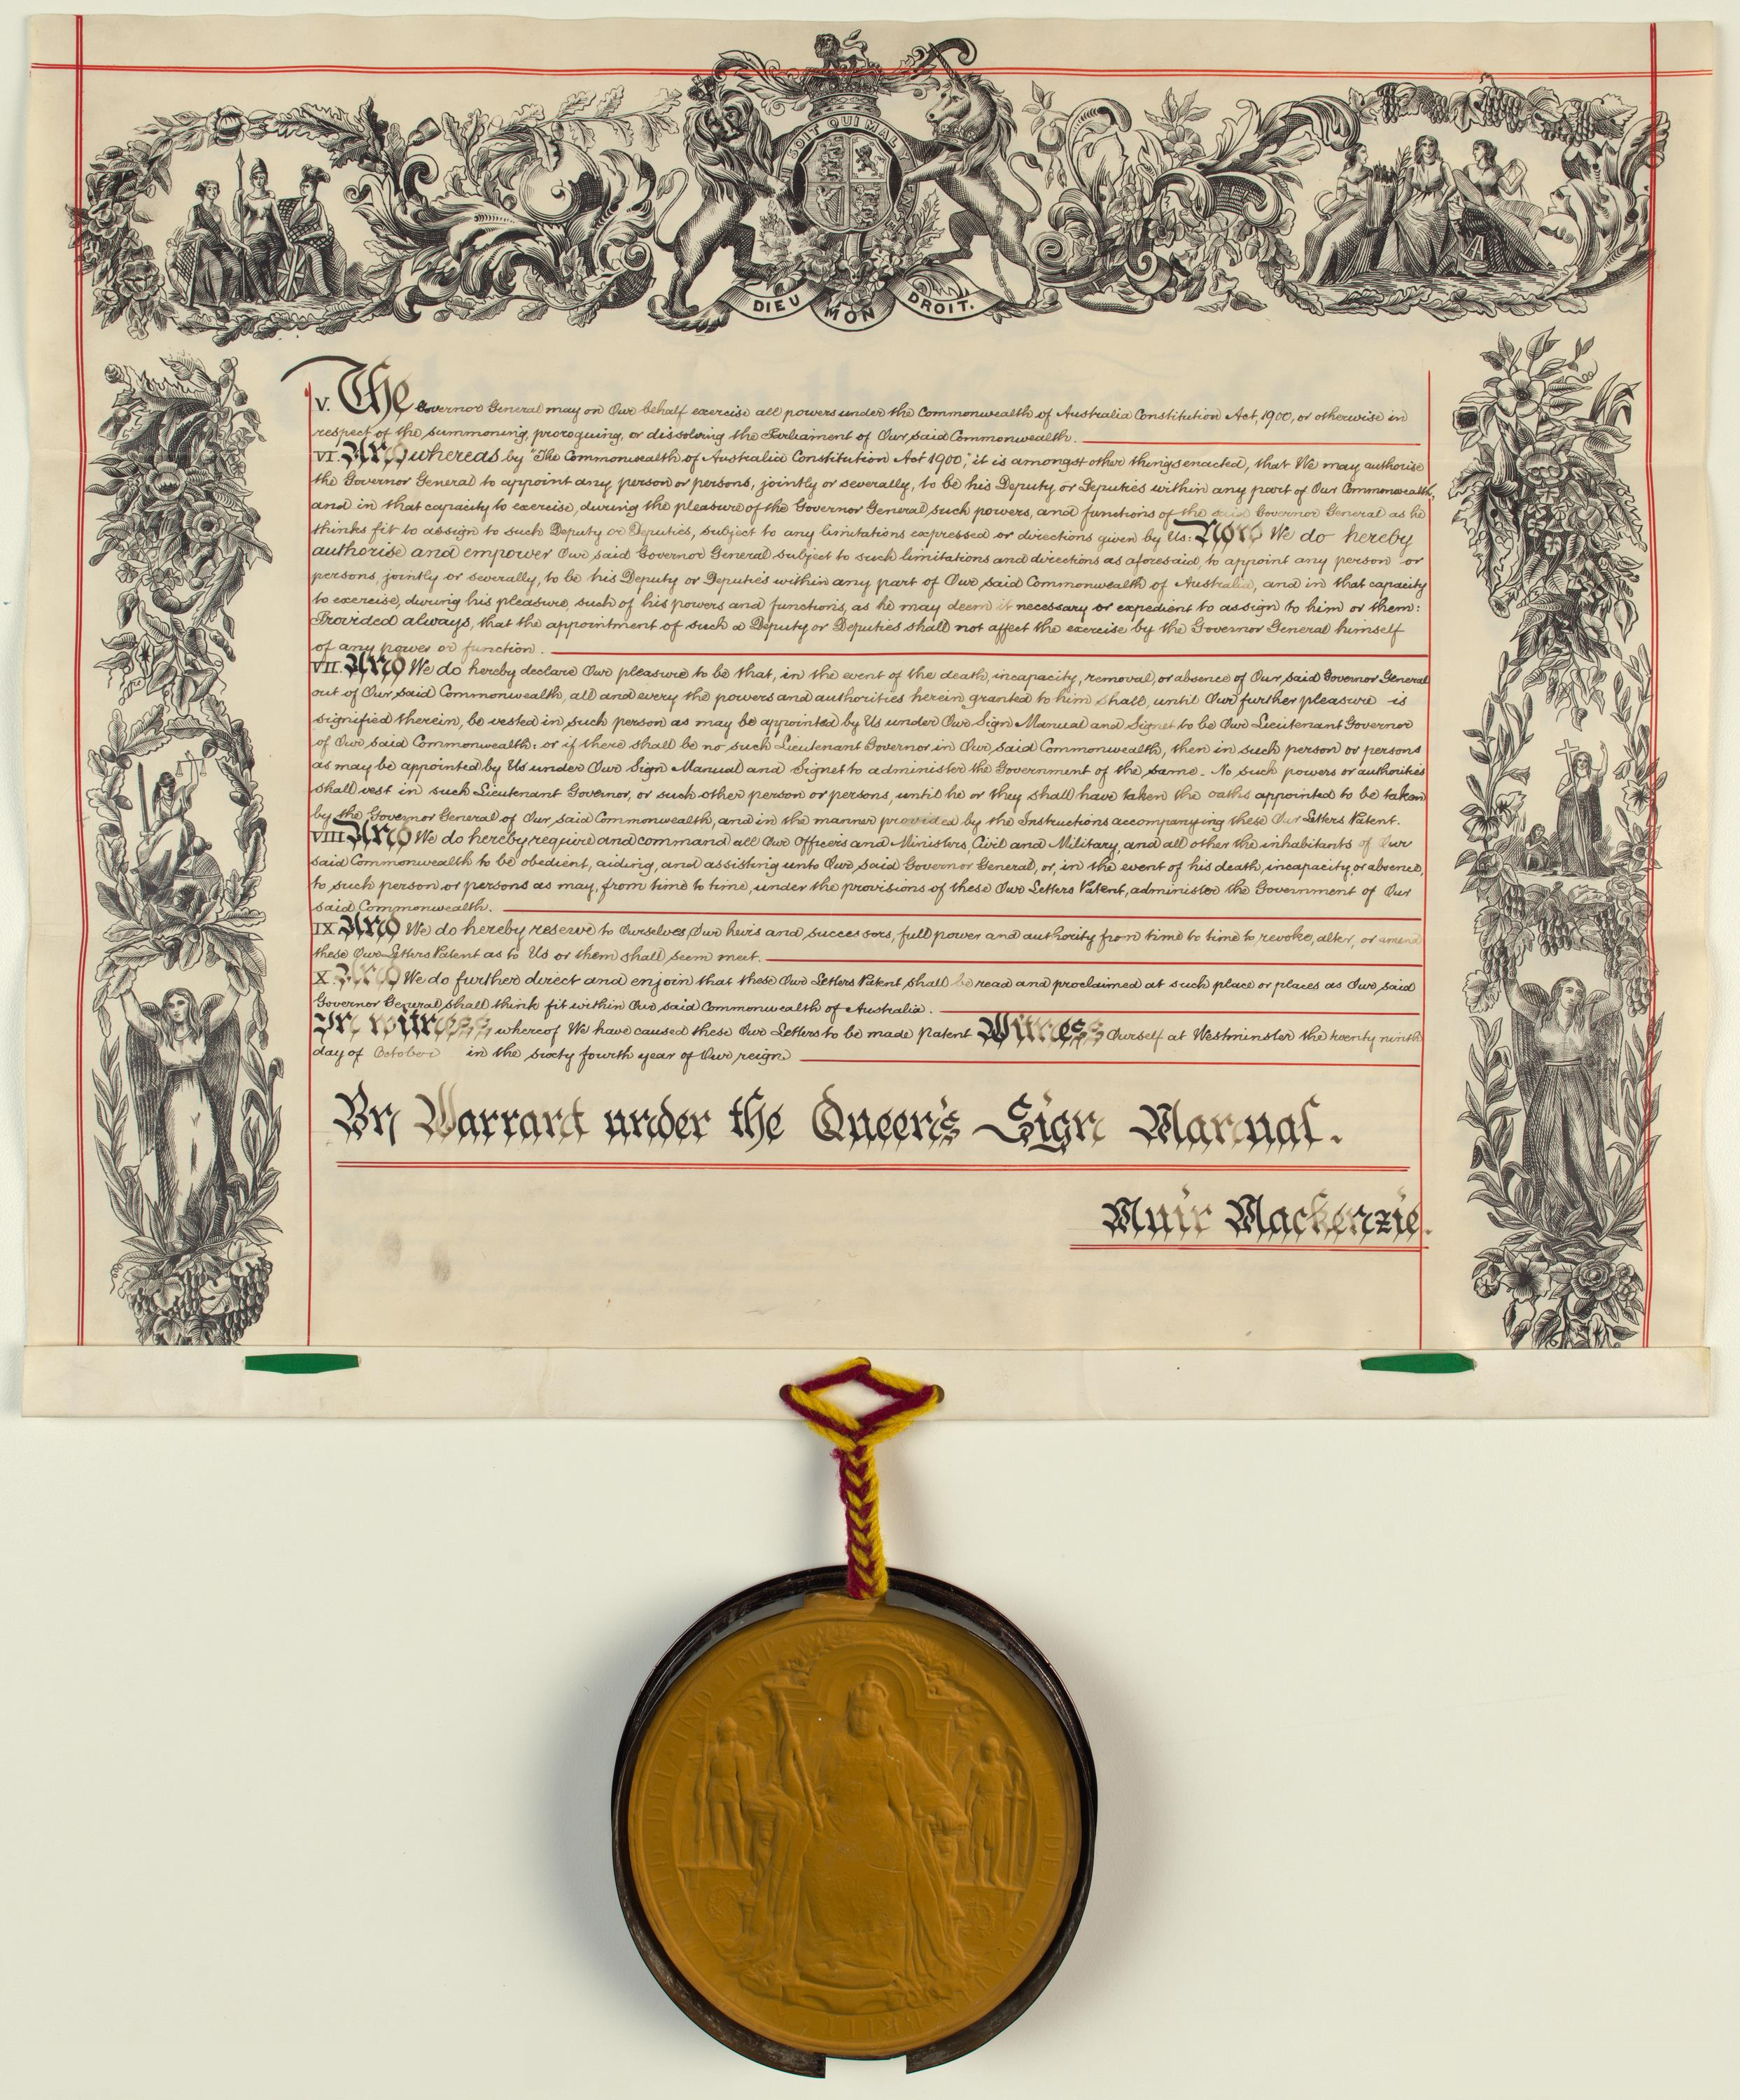 SOIT QUI MAL Y
DIEU MON DROIT.
V. The Governor General may on Our behalf exercise all powers under the Commonwealth of Australia Constitution Act, 1900, or otherwise in
respect of the summoning, proroguing, or dissolving the Parliament of Our said Commonwealth.
VI. And whereas by "The Commonwealth of Australia Constitution Act 1900," it is amongst other things enacted, that We may authorise
the Governor General to appoint any person or persons, jointly or severally, to be his Deputy or Deputies within any part of Our Commonwealth,
and in that capacity to exercise, during the pleasure of the Governor General such powers, and functions of the said Governor General as he
thinks fit to assign to such Deputy or Deputies, subject to any limitations expressed or directions given by Us: Now We do hereby
authorise and empower Our said Governor General subject to such limitations and directions as aforesaid, to appoint any person or
persons, jointly or severally, to be his Deputy or Deputies within any part of Our said Commonwealth of Australia, and in that capacity
to exercise, during his pleasure, such of his powers and functions, as he may deem it necessary or expedient to assign to him or them:
Provided always, that the appointment of such a Deputy or Deputies shall not affect the exercise by the Governor General himself
of any power or function.
VII. And We do hereby declare Our pleasure to be that, in the event of the death, incapacity, removal, or absence of Our said Governor General
out of Our said Commonwealth, all and every the powers and authorities herein granted to him shall, until Our further pleasure is
signified therein, be vested in such person as may be appointed by Us under Our Sign Manual and Signet to be Our Lieutenant Governor
of Our said Commonwealth: or if there shall be no such Lieutenant Governor in Our said Commonwealth, then in such person or persons
as may be appointed by Us under Our Sign Manual and Signet to administer the Government of the same. No such powers or authorities
shall vest in such Lieutenant Governor, or such other person or persons, until he or they shall have taken the oaths appointed to be taken
by the Governor General of Our said Commonwealth, and in the manner provided by the Instructions accompanying these Our Letters Patent.
VIII And We do hereby require and command all Our Officers and Ministers, Civil and Military, and all other the inhabitants of Our
said Commonwealth to be obedient, aiding, and assisting unto Our said Governor General, or, in the event of his death, incapacity, or absence,
to such person or persons as may, from time to time, under the provisions of these Our Letters Patent, administer the Government of Our
said Commonwealth.
IX And We do hereby reserve to Ourselves, Our heirs and successors, full power and authority from time to time to revoke, alter, or amend
these Our Letters Patent as to Us or them shall seem meet.
X. And We do further direct and enjoin that these Our Letters Patent shall be read and proclaimed at such place or places as Our said
Governor General shall think fit within Our said Commonwealth of Australia.
In witness whereof We have caused these Our Letters to be made Patent Witness Ourself at Westminster the twenty ninth
day of October in the sixty fourth year of Our reign
By Warrant under the Queen's Sign Manual.
Muir Mackenzie.